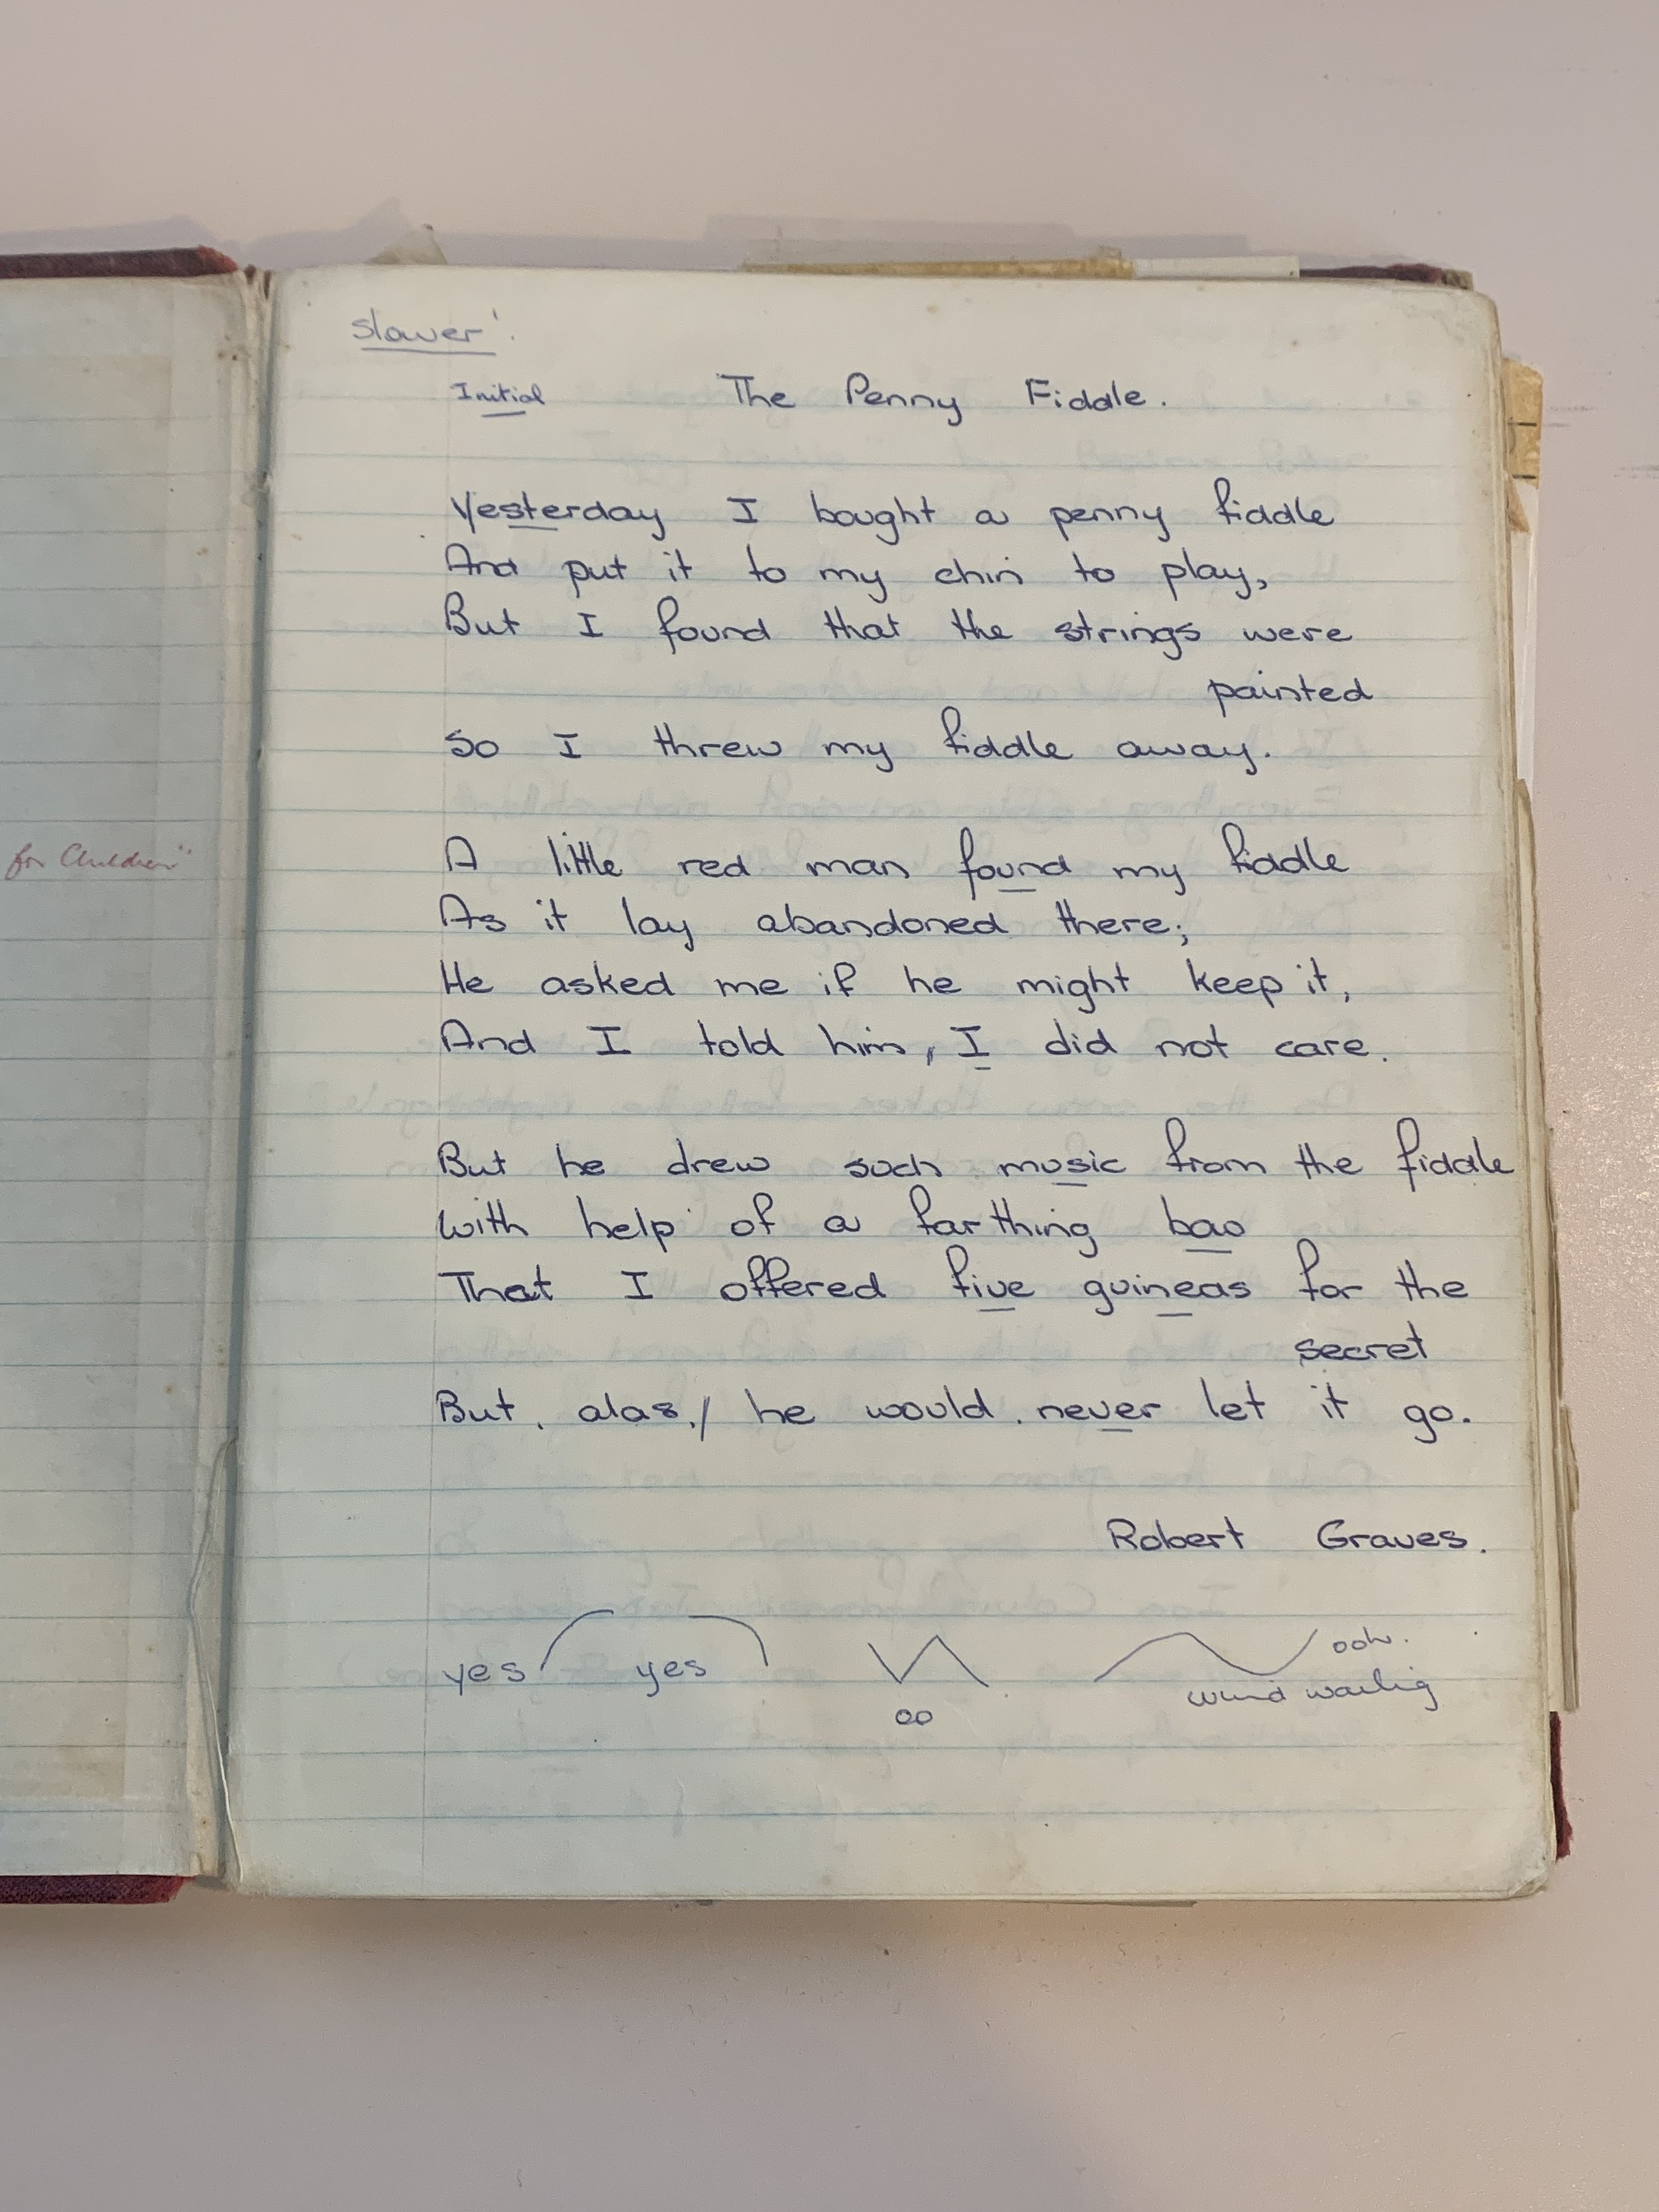 slower!
Initial The Penny Fiddle.
Yesterday I bought a penny fiddle
And put it to my chin to play,
But I found that the strings were
painted
So I threw my fiddle away.
A little red man found my fiddle
As it lay abandoned there;
He asked me if he might keep it,
And I told him, I did not care.
But he drew such music from the fiddle
With help of a farthing bow
That I offered five guineas for the
secret
But, alas,/ he would never let it go.
Robert Graves.
yes yes ooh.
wind wailing
oo
for Children"